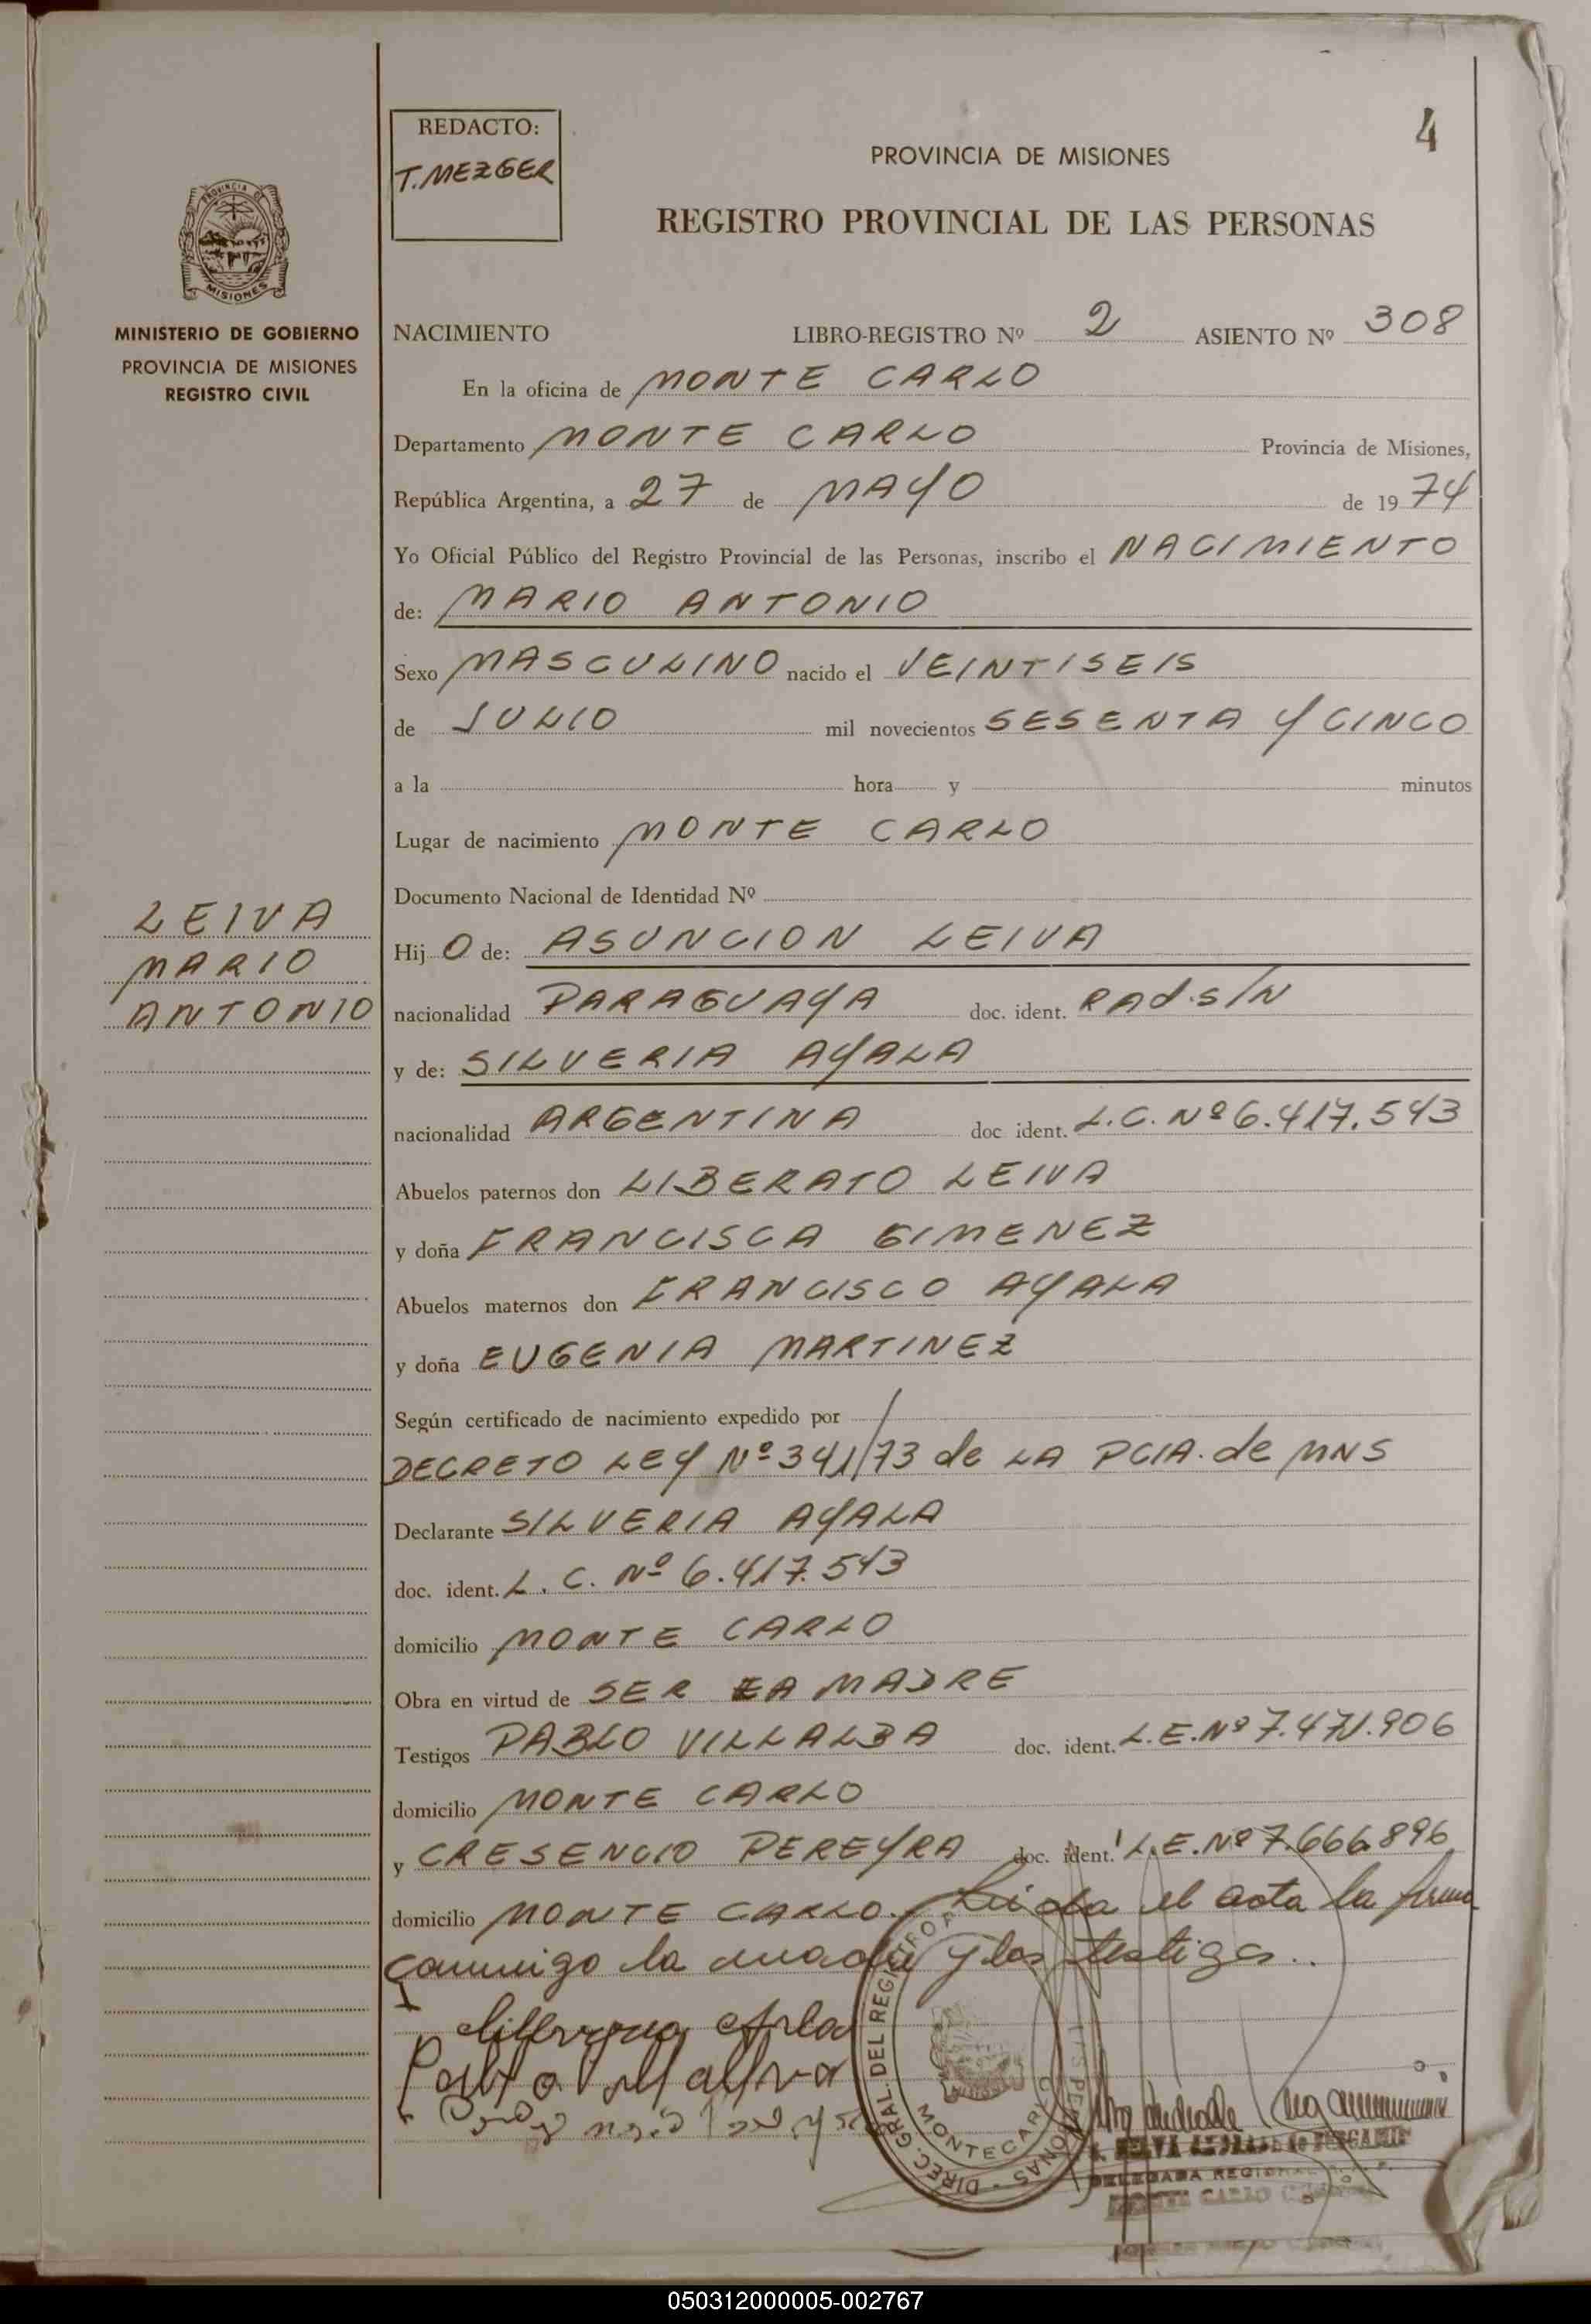 REDACTO:
T. MEZGER
4
PROVINCIA DE MISIONES
REGISTRO PROVINCIAL DE LAS PERSONAS
PROVINCIA DE
MISIONES
MINISTERIO DE GOBIERNO
PROVINCIA DE MISIONES
REGISTRO CIVIL
NACIMIENTO LIBRO-REGISTRO Nº 2 ASIENTO Nº 308
En la oficina de MONTE CARLO
Departamento MONTE CARLO Provincia de Misiones,
República Argentina, a 27 de MAYO de 1974
Yo Oficial Público del Registro Provincial de las Personas, inscribo el NACIMIENTO
de: MARIO ANTONIO
Sexo MASCULINO nacido el VEINTISEIS
de JULIO mil novecientos SESENTA Y CINCO
a la hora y minutos
Lugar de nacimiento MONTE CARLO
Documento Nacional de Identidad Nº
LEIVA
MARIO
ANTONIO
Hijo de: ASUNCION LEIVA
nacionalidad PARAGUAYA doc. ident. RAD. S/N
y de: SILVERIA AYALA
nacionalidad ARGENTINA doc ident. L.C. Nº 6.417.543
Abuelos paternos don LIBERATO LEIVA
y doña FRANCISCA GIMENEZ
Abuelos maternos don FRANCISCO AYALA
y doña EUGENIA MARTINEZ
Según certificado de nacimiento expedido por /
DECRETO LEY Nº 341/73 de LA PCIA. de MNS
Declarante SILVERIA AYALA
doc. ident. L. C. Nº 6.417.543
domicilio MONTE CARLO
Obra en virtud de SER LA MADRE
Testigos PABLO VILLALBA doc. ident. L.E. Nº 7.471.906
domicilio MONTE CARLO
y CRESENCIO PEREYRA doc. ident. L.E. Nº 7.666.896
domicilio MONTE CARLO. Leida el acta la firma
conmigo la madre y los testigos.
DIREC. GRAL. DEL REGISTRO
PERSONAS
MONTECARLO
DELEGADA REGIONAL
MONTE CARLO
050312000005-002767